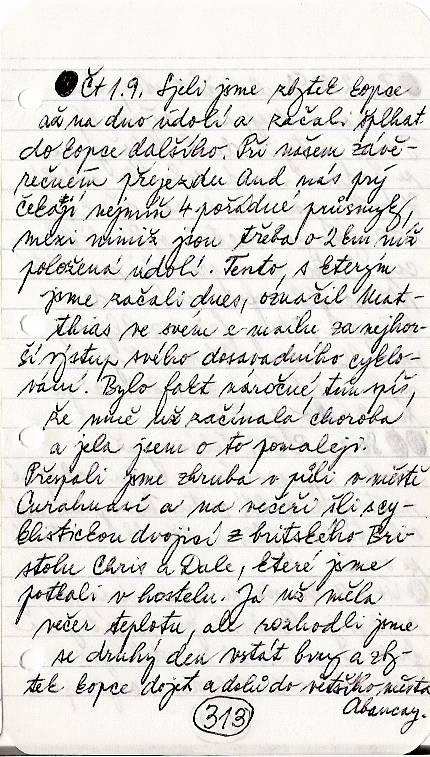 Čt 1.9. Sjeli jsme zbytek kopce
až na dno údolí a začali šplhat
do kopce dalšího. Při našem závě-
rečném přejezdu And nás prý
čekají nejmíň 4 pořádné průsmyky,
mezi nimiž jsou třeba o 2 km níž
položená údolí. Tento, s kterým
jsme začali dnes, označil Mat-
thias ve svém e-mailu za nejhor-
ší výstup svého dosavadního cyklo-
vání. Bylo fakt náročné, tím spíš,
že mně už začínala choroba
a jela jsem o to pomaleji.
Přespali jsme zhruba v půli v městě
Curahuasi a na večeři šli s cy-
klistickou dvojicí z britského Bri-
stolu Chris a Dale, které jsme
potkali v hostelu. Já už měla
večer teplotu, ale rozhodli jsme
se druhý den vstát brzy a zby-
tek kopce dojet a dolů do většího města
Abancay.
313